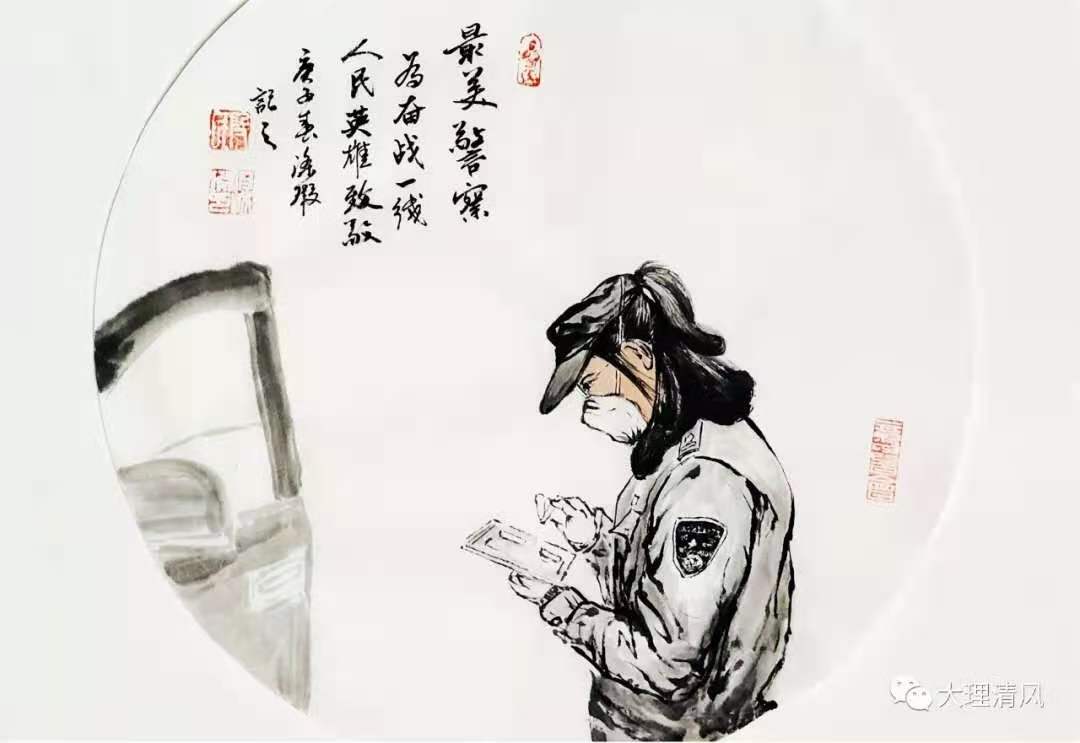 最美警察
为奋战一线
人民英雄致敬
庚子春
記之
大理清风